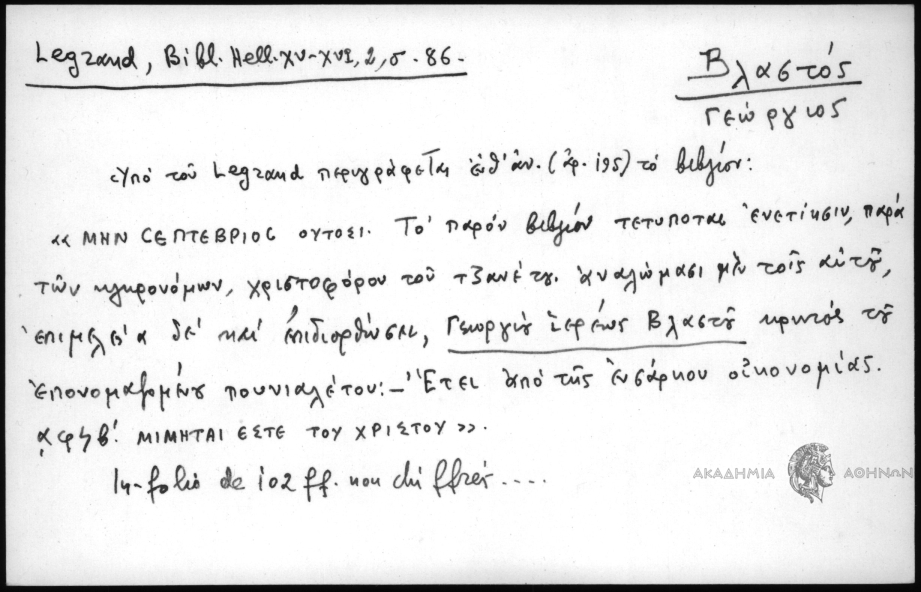 Legrand, Bibl. Hell. XV-XVI, 2, σ. 86.
Βλαστός
Γεώργιος
Ὑπό τοῦ Legrand περιγράφεται ὑπ' ἀν. (ἀρ. 195) τό βιβλίον:
«ΜΗΝ CΕΠΤΕΒΡΙΟC ΟΥΤΟΣΙ. Το' παρόν βιβλίον τετυποται ἐνετίησιν, παρά
τῶν κληρονόμων, χριστοφόρου τοῦ τζανέτου. ἀναλώμασι μὲν τοῖς αὐτοῦ,
ἐπιμελεία δέ καί ἐπιδιορθώσει, Γεωργίου ἱερέως Βλαστοῦ κρητός τοῦ
ἐπονομαζομένου πουνιαλέτου:– Ἔτει ἀπό τῆς ἐνσάρκου οἰκονομίας.
αφϟβ'. ΜΙΜΗΤΑΙ ΕΣΤΕ ΤΟΥ ΧΡΙΣΤΟΥ».
In-folio de 102 ff. non chiffrés....
ΑΚΑΔΗΜΙΑ ΑΘΗΝΩΝ